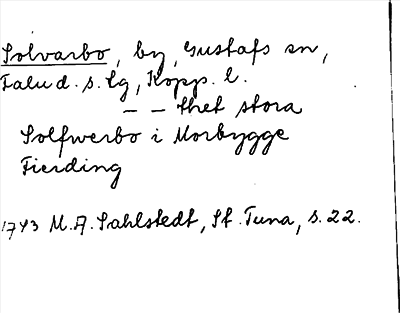 Solvarbo, by, Gustafs sn,
Falu d. s. lg, Kopp. l.
— — thet stora
Solfwerbo i Morbygge
Fierding
1743 M. A. Sahlstedt, St. Tuna, s. 22.